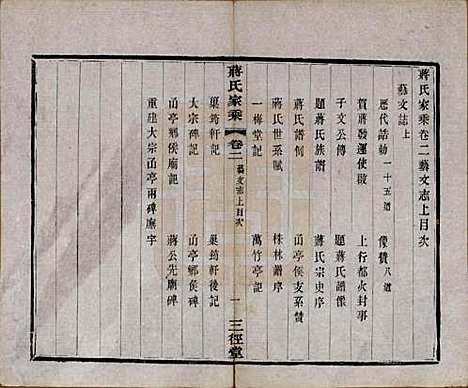 蔣氏家乘卷二藝文志上目次
藝文誌上
歷代誥勅一十五道　像贊八道
賀蔣發運使啟　上行都火封事
子文公傳　題蔣氏譜像
題蔣氏族譜　蔣氏宗史序
蔣氏譜例　函亭侯支系贊
蔣氏世系賦　株林譜序
一梅堂記　萬竹亭記
蔣氏家乘　卷二　藝文志上目次　一　三徑堂
菓筠軒記　菓筠軒後記
大宗碑記　函亭鄉侯碑
函亭鄉侯廟記　蔣公先廟碑
重建大宗函亭兩碑廟宇